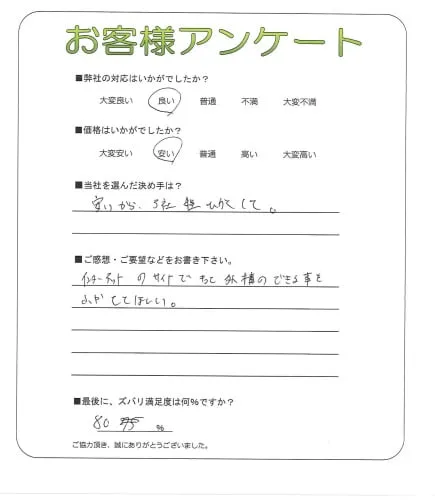 お客様アンケート
■弊社の対応はいかがでしたか？
大変良い 良い 普通 不満 大変不満
■価格はいかがでしたか？
大変安い 安い 普通 高い 大変高い
■当社を選んだ決め手は？
安いから、3社 ひかくして。
■ご感想・ご要望などをお書き下さい。
インターネット のサイトで もっと 外構のできる事を
してほしい。
■最後に、ズバリ満足度は何%ですか？
80 %
ご協力頂き、誠にありがとうございました。